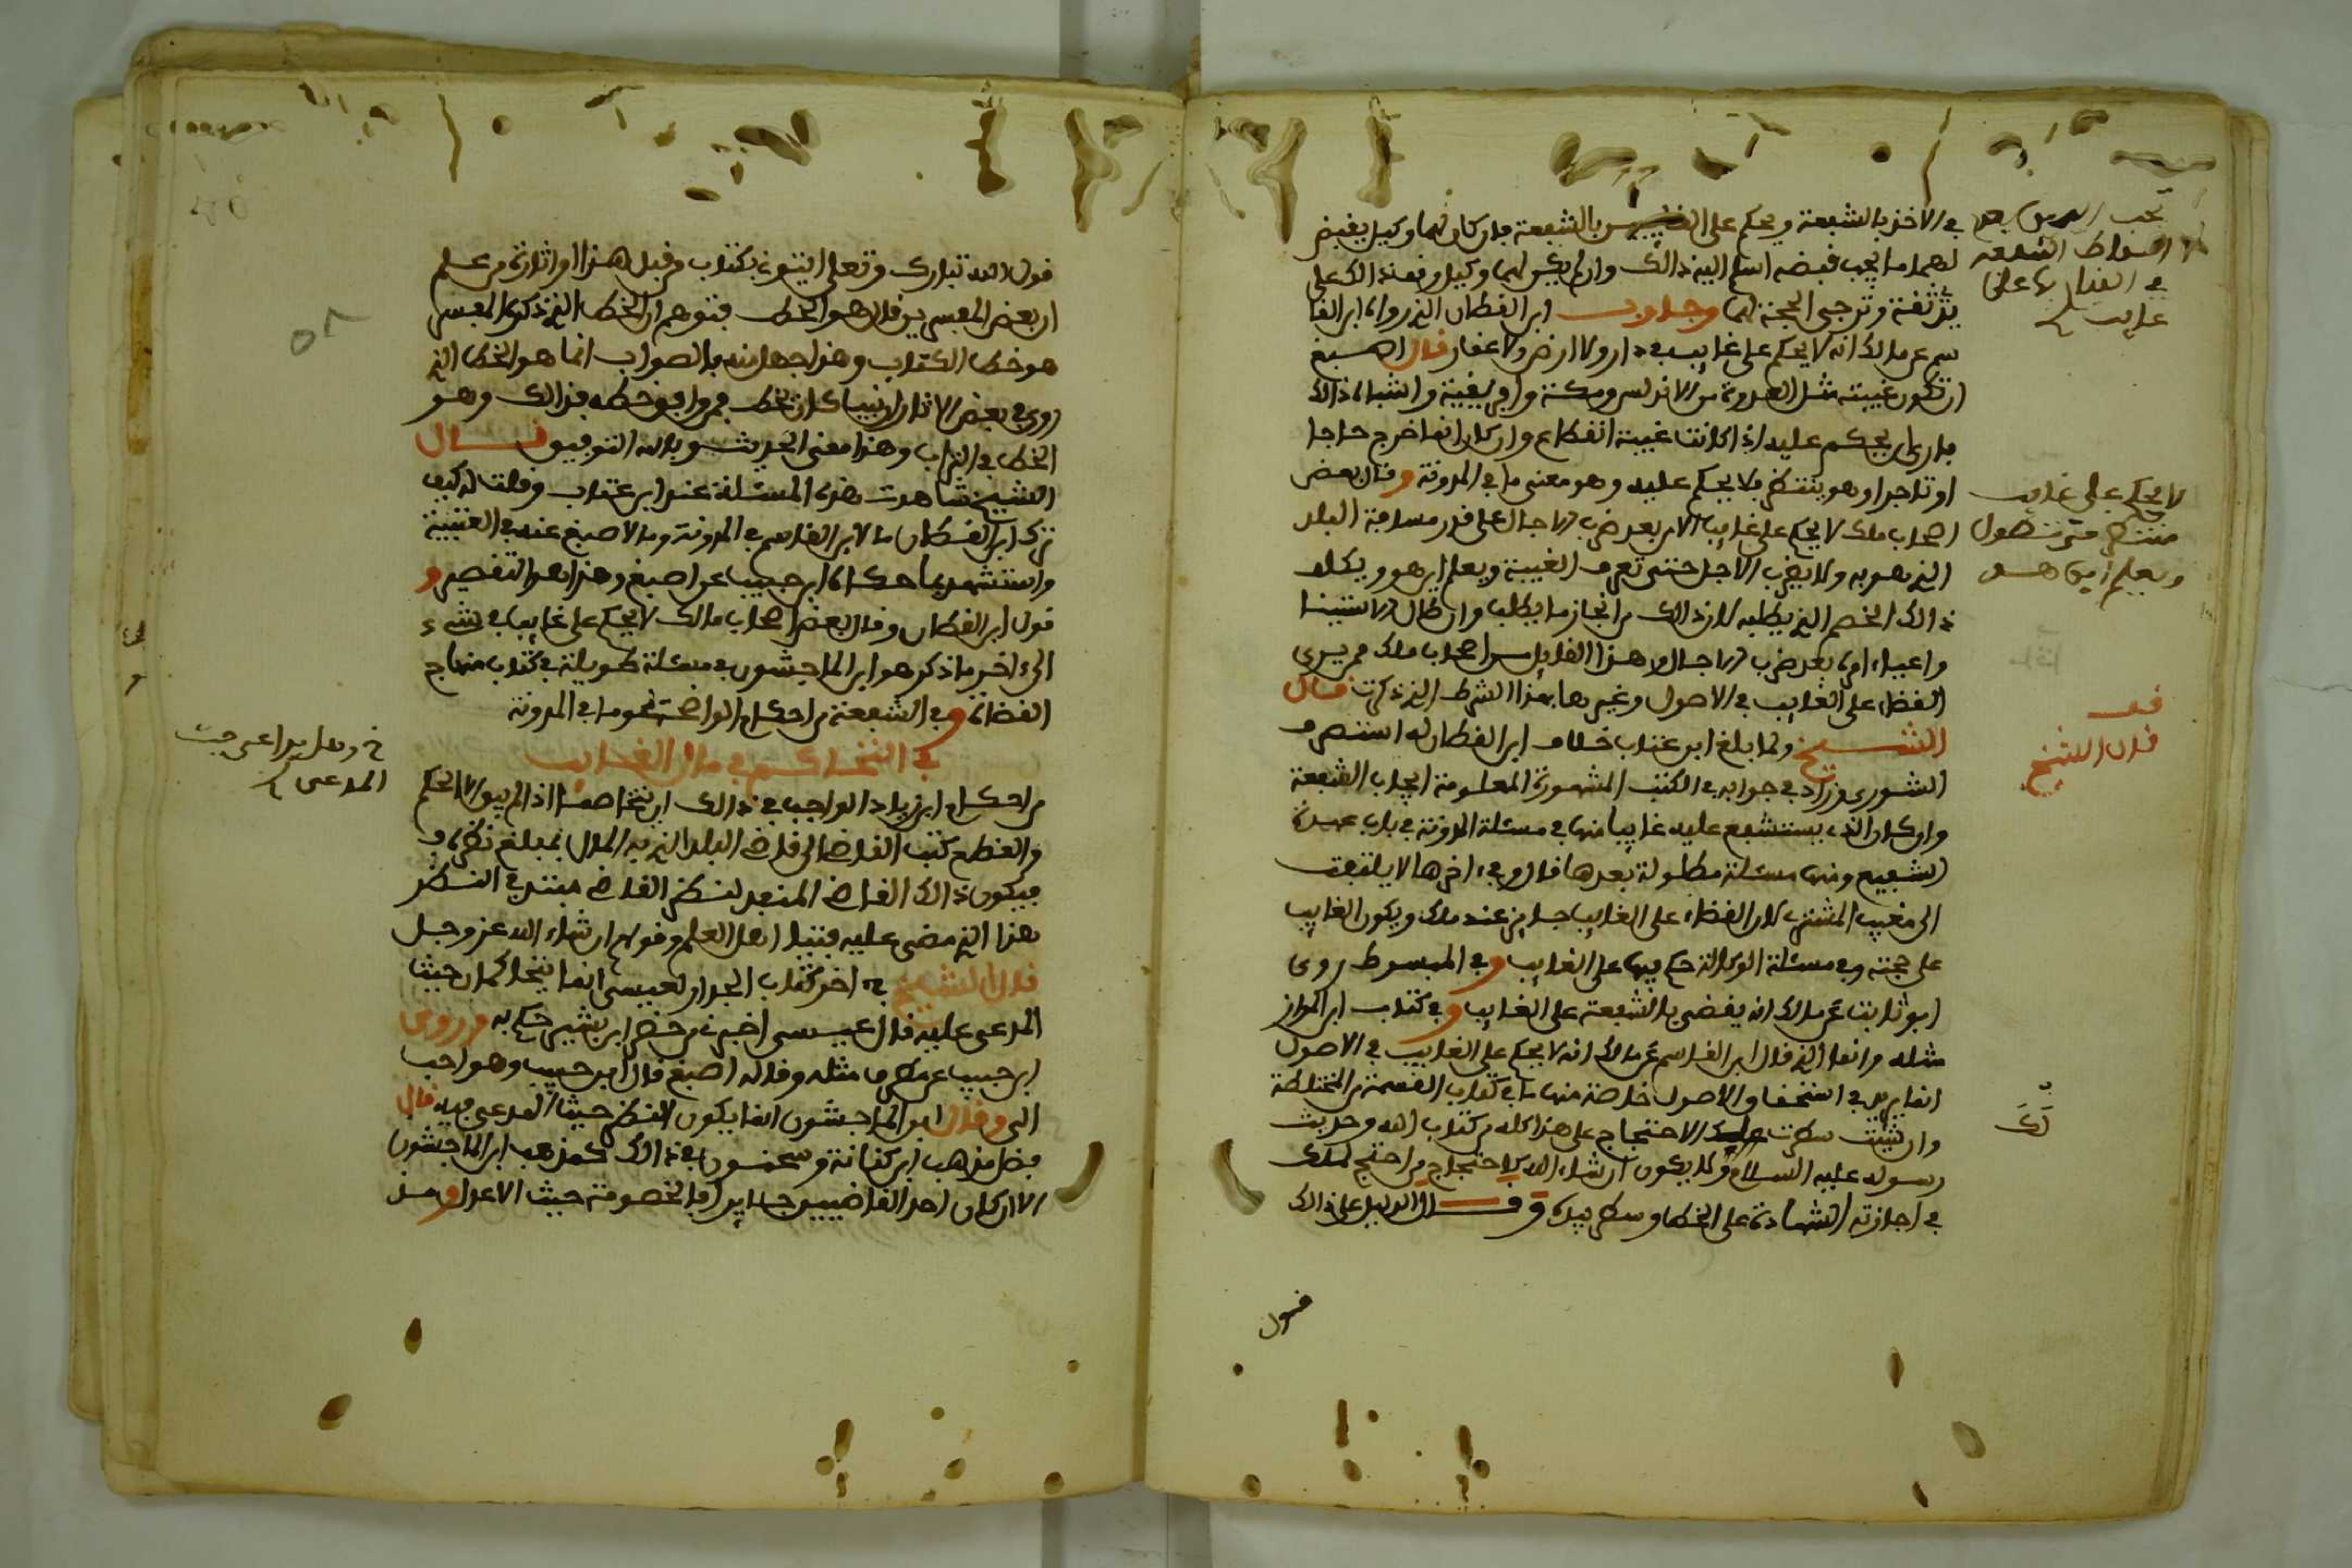 في الاخذ بالشفعة ويحكم على بالشفعة فان كان لهما وكيل يقبض
لهما ما يجب قبضه اسلم اليه ذلك وان لم يكن لهما وكيل وقف ذلك على
يد ثقة وترجى الحجة لهما وجاوب ابن القطان الذي رواه ابن القا
سم عن مالك انه لا يحكم على غايب في دار ولا ارض ولا عقار قال اصبغ
ان تكون غيبته مثل العدوة من الاندلس ومكة وافريقية واشباه ذلك
فارى ان يحكم عليه اذا كانت غيبة انقطاع وان كان انما خرج حاجا
او تاجرا وهو ينتظر فلا يحكم عليه وهو معنى ما في المدونة وقال بعض
اصحاب ملك لا يحكم على غايب الا من بعد ضرب الاجال على قدر مسافة البلد
الذي هو به ولا يضرب الاجل حتى تعرف الغيبة ويعلم اين هو ويكلف
ذلك الخصم الذي يطلبه لان ذلك من انجاز ما يطلب وان طال
واعياه امره بعد ضرب الاجال وهذا القايل من اصحاب ملك ممن يرى
القضاء على الغايب في الاصول وغيرها بهذا الشرط الذي ذكرت قال
الشيخ ولما بلغ ابن عتاب خلاف ابن القطان له استنصر ف
الشورى وزاد في جوابه في الكتب المشهورة المعلومة ايجاب الشفعة
وان كان الذي يستشفع عليه غايبا منها في مسئلة المدونة في باب عهدة
الشفيع ومنها مسئلة مطولة بعدها قال وفي اخرها لا يلتفت
الى مغيب المشتري لان القضاء على الغايب جايز عند ملك ويكون الغايب
على حجته وفي مسئلة الوكالة حكم فيها على الغايب وفي المبسوط روى
ابو ثابت عن مالك انه يقضى بالشفعة على الغايب وفي كتاب ابن المواز
مثله وانما الذي قال ابن القاسم عن مالك انه لا يحكم على الغايب في الاصول
انما يريد في استحقاق الاصول خاصة منها ما في كتاب القسمة من المختلطة
وان شئت سطرت الاحتجاج على هذا كله من كتاب الله وحديث
رسوله عليه السلام ولا يكون ان شاء الله كاحتجاج من احتج لملك
في اجازته الشهادة على الخط وسطر بيده وقال الدليل على ذلك
قول
اسقاط الشفعة
غايب
لا يحكم على غايب
ينتظر حتى تطول
ويعلم اين هو
قف
قال الشيخ
قول الله تبارك وتعلى ايتوني بكتاب من قبل هذا او اثارة من علم
ان بعض المفسرين قال هو الخط فتوهم ان الخط الذي ذكره المفسر
هو خط الكتاب وهذا جهل منه بالصواب انما هو الخط الذي
روي في بعض الاثار ان نبيا كان يخط فمن وافق خطه فذلك وهو
الخط في التراب وهذا معنى الحديث وبالله التوفيق قال
الشيخ شاهدت هذه المسئلة عند ابن عتاب وقلت له كيف
ترك ابن القطان ما لابن القاسم في المدونة وما لاصبغ عنه في العتبية
واستشهد بما حكاه ابن حبيب عن اصبغ وهذا هو التقصير و
قول ابن القطان وقال بعض اصحاب مالك لا يحكم على غايب في شيء
الى اخر ما ذكر هو ابن الماجشون في مسئلة طويلة في كتاب منهاج
القضاة وفي الشفعة من احكام الواضحة نحو ما في المدونة
في التحاكم في مال الغايب
من احكام ابن زياد الواجب في ذلك ان يتخاصما اذا لم يبق الا الحكم
والقطع كتب القاضي الى قاضي البلد الذي به المال بمبلغ نظره
فيكون ذلك القاضي المنفذ لنظر القاضي مبتدئ النظر
هذا الذي مضى عليه فتيا اهل العلم وقولهم ان شاء الله عز وجل
قال الشيخ في اخر كتاب الجدار لعيسى انما يتحاكمان حيث
المدعى عليه قال عيسى اخبرني من حضر ابن بشير حكم به وروى
ابن حبيب عن مطرف مثله وقاله اصبغ قال ابن حبيب وهو احب
الي وقال ابن الماجشون انما يكون النظر حيث المدعى فيه قال
فضل مذهب ابن كنانة وسحنون في ذلك كمذهب ابن الماجشون
الا ان كان احد القاضيين جايرا فالخصومة حيث الاعدل ومن
المدعى